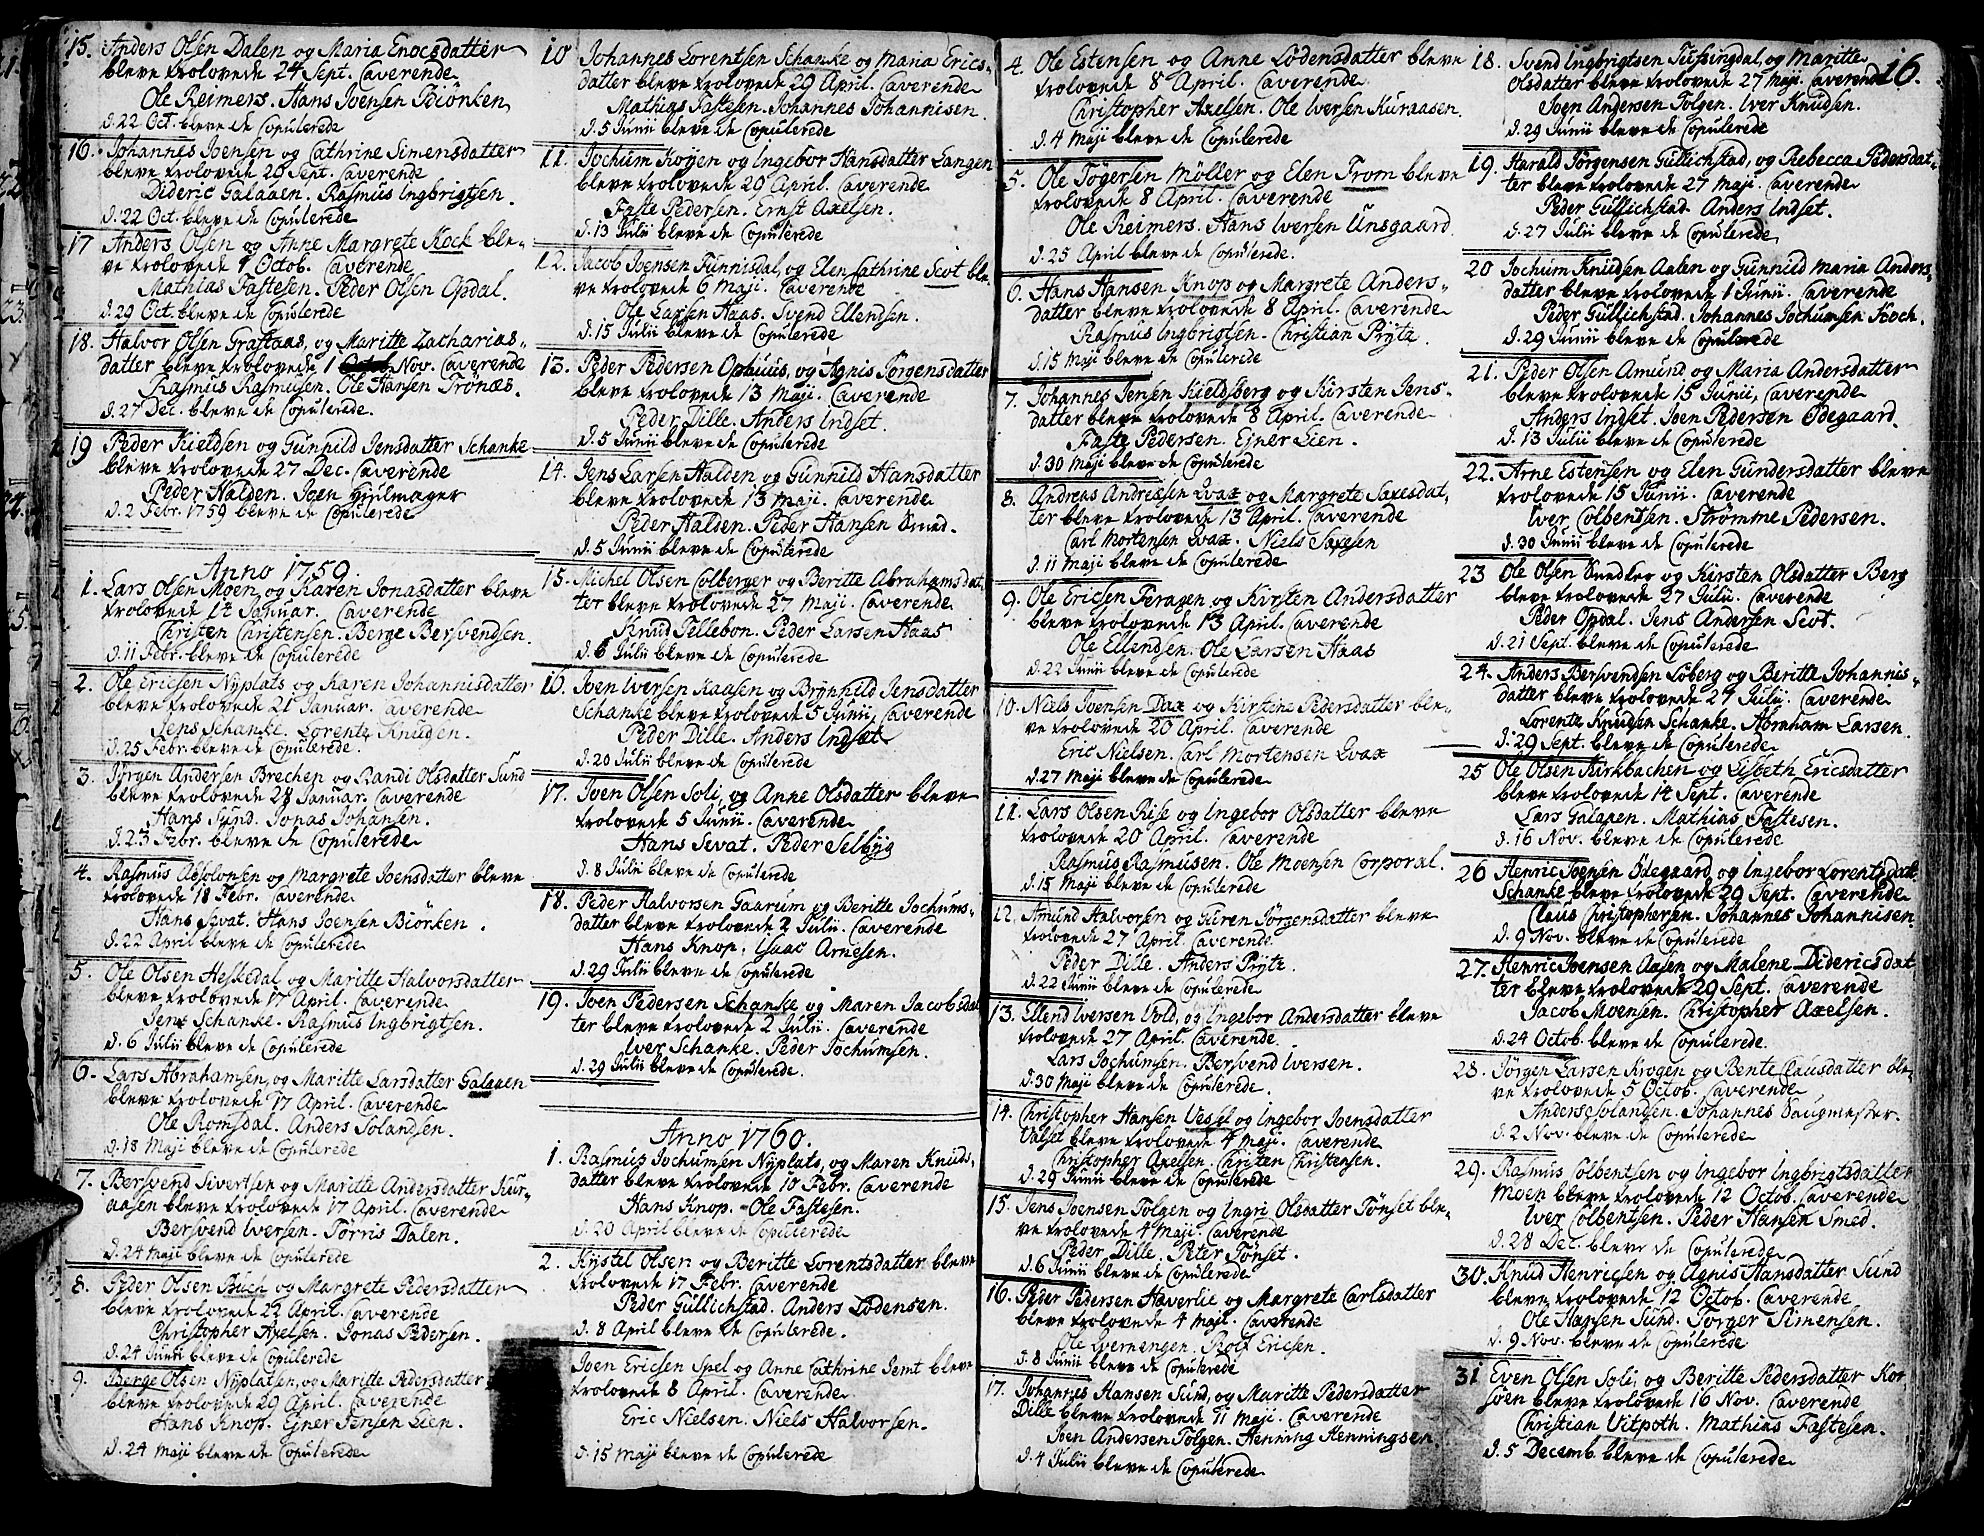 15. Anders Olsen Dalen og Maria Enocsdatter
bleve trolovede 24 Sept. Caverende
Ole Reimers. Hans Joensen Biörken
d. 22 Oct. bleve de Copulerede
16. Johannes Joensen og Cathrine Simensdatter
bleve trolovede 29 Sept. Caverende
Dideric Galaaen. Rasmus Ingbrigtsen.
d. 22 Oct. bleve de Copulerede
17 Anders Olsen og Anne Margrete Kock ble-
ve trolovede 1 Octob. Caverende
Mathias Fastesen. Peder Olsen Opdal.
d. 29 Oct. bleve de Copulerede
18. Halvor Olsen Graftaas, og Maritte Zacharias-
datter bleve trolovede 1 Nov. Caverende
Rasmus Rasmusen. Ole Hansen Trönæs.
d. 27 Dec. bleve de Copulerede.
19 Peder Kieldsen og Gunnild Jensdatter Schanke
bleve trolovede 27 Dec. Caverende
Peder Halden. Joen Hiulmager
d. 2 Febr. 1759 bleve de Copulerede
Anno 1759
1. Lars Olsen Moen, og Karen Jonasdatter bleve
trolovede 14 Januar. Caverende
Christen Christensen. Berge Bersvendsen.
d. 11 Febr. bleve de Copulerede
2. Ole Ericsen Nyplats og Karen Johannisdatter
bleve trolovede 21 Januar. Caverende
Jens Schanke. Lorentz Knudsen.
d. 25 Febr. bleve de Copulerede.
3. Jörgen Andersen Brechen og Randi Olsdatter Sund
bleve trolovede 28 Januar. Caverende
Hans Sund. Jonas Johansen.
d. 23 Febr. bleve de Copulerede
4. Rasmus Absolonsen og Margrete Joensdatter bleve
trolovede 18 Febr. Caverende
Hans Sevat. Hans Joensen Biörken.
d. 22 April bleve de Copulerede
5. Ole Olsen Heskedal og Maritte Halvorsdatter
bleve trolovede 17 April. Caverende
Jens Schanke. Rasmus Ingbrigtsen.
d. 6 Julii bleve de Copulerede
6. Lars Abrahamsen, og Maritte Larsdatter Galaaen
bleve trolovede 17 April. Caverende
Ole Romsdal. Anders Solandsen.
d. 18 Maji bleve de Copulerede
7. Bersvend Sivertsen og Maritte Andersdatter Kur-
aasen bleve trolovede 17 April. Caverende
Bersvend Iversen. Törris Dalen.
d. 24 Maji bleve de Copulerede
8. Peder Olsen Buch og Margrete Pedersdatter
bleve trolovede 22 April. Caverende
Christopher Axelsen. Jonas Pedersen.
d. 24 Junii bleve de Copulerede
9. Berge Olsen Nyplatsen, og Maritte Pedersdatter
bleve trolovede 29 April. Caverende
Hans Knop. Ejner Jensen Lien.
d. 24 Maji bleve de Copulerede
10 Johannes Lorentsen Schanke og Maria Erics-
datter bleve trolovede 29 April. Caverende
Mathias Fastesen. Johannes Johannisen.
d. 5 Junii bleve de Copulerede
11. Jochum Kojen og Ingebor Hansdatter Langen
bleve trolovede 29 April. Caverende
Faste Pedersen. Ernst Axelsen.
d. 13 Julii bleve de Copulerede
12. Jacob Joensen Funnisdal, og Elen Cathrine Scot ble-
ve trolovede 6 Maji. Caverende
Ole Larsen Haas. Svend Ellendsen.
d. 15 Julii bleve de Copulerede
13. Peder Pedersen Ophuus, og Agnis Jörgensdatter
bleve trolovede 13 Maji. Caverende
Peder Dille. Anders Indset.
d. 5 Junii bleve de Copulerede
14. Jens Larsen Halden og Gunnild Hansdatter
bleve trolovede 13 Maji. Caverende
Peder Halden. Peder Hansen Smed.
d. 5 Junii bleve de Copulerede
15. Michel Olsen Colberger og Beritte Abrahamsdat-
ter bleve trolovede 27 Maji. Caverende
Knud Tellebon. Peder Larsen Haas
d. 6 Julii bleve de Copulerede
16. Joen Iversen Kaasen og Brynhild Jensdatter
Schanke bleve trolovede 5 Junii. Caverende
Peder Dille. Anders Indset
d. 20 Julii bleve de Copulerede
17. Joen Olsen Soli, og Anne Olsdatter bleve
trolovede 5 Junii. Caverende
Hans Sevat. Peder Selbyg
d. 8 Julii bleve de Copulerede
18. Peder Halvorsen Gaarum og Beritte Jochums-
datter bleve trolovede 2 Julii. Caverende
Hans Knop. Isaac Arnesen.
d. 29 Julii bleve de Copulerede
19. Joen Pedersen Schanke og Maren Jacobsdat
ter bleve trolovede 2 Julii. Caverende
Iver Schanke. Peder Jochumsen.
d. 29 Julii bleve de Copulerede.
Anno 1760.
1. Rasmus Jochumsen Nyplats, og Maren Knuds-
datter bleve trolovede 10 Febr. Caverende
Hans Knop. Ole Fastesen.
d. 20 April bleve de Copulerede
2. Kystel Olsen og Beritte Lorentsdatter bleve
trolovede 17 Febr. Caverende
Peder Gullichstad. Anders Lodensen.
d. 8 April bleve de Copulerede.
Joen Ericsen Spel og Anne Cathrine Jemt bleve
trolovede 8 April. Caverende
Eric Nielsen. Niels Halvorsen.
d. 15 Maji bleve de Copulerede
4. Ole Estensen og Anne Lodensdatter bleve
trolovede 8 April. Caverende
Christopher Axelsen. Ole Iversen Kuraasen.
d. 4 Maji bleve de Copulerede
5. Ole Tögersen Möller og Elen Trom bleve
trolovede 8 April. Caverende
Ole Reimers. Hans Iversen Unsgaard.
d. 25 April bleve de Copulerede.
6. Hans Hansen Knop og Margrete Anders-
datter bleve trolovede 8 April. Caverende
Rasmus Ingbrigtsen. Christian Prytz.
d. 15 Maji bleve de Copulerede
7. Johannes Jensen Kieldsberg og Kirsten Jens-
datter bleve trolovede 8 April. Caverende
Faste Pedersen. Ejner Lien.
d. 30 Maji bleve de Copulerede
8. Andreas Andressen Qvax og Margrete Saxesdat-
ter bleve trolovede 13 April. Caverende
Carl Mortensen Qvax. Niels Saxesen
d. 11 Maji bleve de Copulerede
9. Ole Ericsen Feragen og Kirsten Andersdatter
bleve trolovede 13 April. Caverende
Ole Ellendsen. Ole Larsen Haas
d. 22 Junii bleve de Copulerede
10. Niels Joensen Dax og Kirstine Pedersdatter ble-
ve trolovede 20 April. Caverende
Eric Nielsen. Carl Mortensen Qvax
d. 27 Maji bleve de Copulerede
11. Lars Olsen Rise og Ingebor Olsdatter bleve
trolovede 20 April. Caverende
Rasmus Rasmusen. Ole Moensen Corporal.
d. 15 Maji bleve de Copulerede
12. Amund Halvorsen og Guren Jörgensdatter bleve
trolovede 27 April. Caverende
Peder Dille. Anders Prytz.
d. 22 Junii bleve de Copulerede.
13. Ellend Iversen Vold, og Ingebor Andersdatter bleve
trolovede 27 April. Caverende
Lars Jochumsen. Bersvend Iversen.
d. 30 Maji bleve de Copulerede.
14. Christopher Hansen Vessel og Ingebor Joensdatter
Valset bleve trolovede 4 Maji. Caverende
Christopher Axelsen. Christen Christensen.
d. 29 Junii bleve de Copulerede
15. Jens Joensen Tolgen og Ingri Olsdatter Tönset ble-
ve trolovede 4 Maji. Caverende
Peder Dille. Peter Tönset.
d. 6 Junii bleve de Copulerede
16. Peder Pedersen Haverlie og Margrete Carlsdatter
bleve trolovede 4 Maji. Caverende
Ole Evernengen. Rolf Ericsen.
d. 8 Junii bleve de Copulerede
17. Johannes Hansen Sund, og Maritte Pedersdatter
Dille bleve trolovede 11 Maji. Caverende
Joen Andersen Tolgen. Henning Henningsen.
d. 4 Julii bleve de Copulerede
16.
18. Svend Ingbrigtsen Tufsingdal, og Maritte
Olsdatter bleve trolovede 27 Maji. Caverende
Joen Andersen Tolgen. Iver Knudsen.
d. 29 Junii bleve de Copulerede
19. Harald Jörgensen Gullichstad, og Rebecca Pedersdat-
ter bleve trolovede 27 Maji. Caverende
Peder Gullichstad. Anders Indset.
d. 27 Julii bleve de Copulerede
20 Jochum Knudsen Aalen og Gunnild Maria Anders-
datter bleve trolovede 1 Junii. Caverende
Peder Gullichstad. Johannes Jochumsen Koch.
d. 29 Junii bleve de Copulerede
21. Peder Olsen Amund, og Maria Andersdatter
bleve trolovede 15 Junii, Caverende
Anders Indset. Joen Pedersen Ödegaard.
d. 13 Julii bleve de Copulerede
22. Arne Estensen og Elen Gundersdatter bleve
trolovede 15 Junii. Caverende
Iver Colbentsen. Strömme Pedersen.
d. 30 Junii bleve de Copulerede
23 Ole Olsen Snedker og Kirsten Olsdatter Berg
bleve trolovede 27 Julii. Caverende
Peder Opdal. Jens Andersen Scot.
d. 21 Sept. bleve de Copulerede
24. Anders Bersvendsen Löberg og Beritta Johannis-
datter bleve trolovede 27 Julii. Caverende
Lorentz Knudsen Schanke. Abraham Larsen.
d. 29 Sept. bleve de Copulerede
25 Ole Olsen Kirkbachen og Lisbeth Ericsdatter
bleve trolovede 14 Sept. Caverende
Lars Galaaen. Mathias Fastesen.
d. 16 Nov. bleve de Copulerede
26 Henric Joensen Ödegaard, og Ingebor Lorentsdat
Schanke bleve trolovede 29 Sept. Caverende
Claus Christophersen. Johannes Johannisen.
d. 9 Nov. bleve de Copulerede
27. Henric Joensen Aasen og Malene Didericsdat
ter bleve trolovede 29 Sept. Caverende
Jacob Moensen. Christopher Axelsen.
d. 24 Octob. bleve de Copulerede.
28. Jörgen Larsen Krogen og Bente Clausdatter ble-
ve trolovede 5 Octob. Caverende
Anders Solandsen. Johannes Saugmester.
d. 2 Nov. bleve de Copulerede
29. Rasmus Colbentsen og Ingebor Ingbrigtsdatter
Moen bleve trolovede 12 Octob. Caverende
Iver Colbentsen. Peder Hansen Smed.
d. 28 Dec. bleve de Copulerede
30. Knud Henricsen og Agnis Hansdatter Sund
bleve trolovede 12 Octob. Caverende
Ole Hansen Sund. Törger Simensen.
d. 9 Nov. bleve de Copulerede
31 Even Olsen Soli, og Beritte Pedersdatter Kor
söen bleve trolovede 16 Nov. Caverende
Christian Vitpoth. Mathias Fastesen.
d. 5 Decemb. bleve de Copulerede